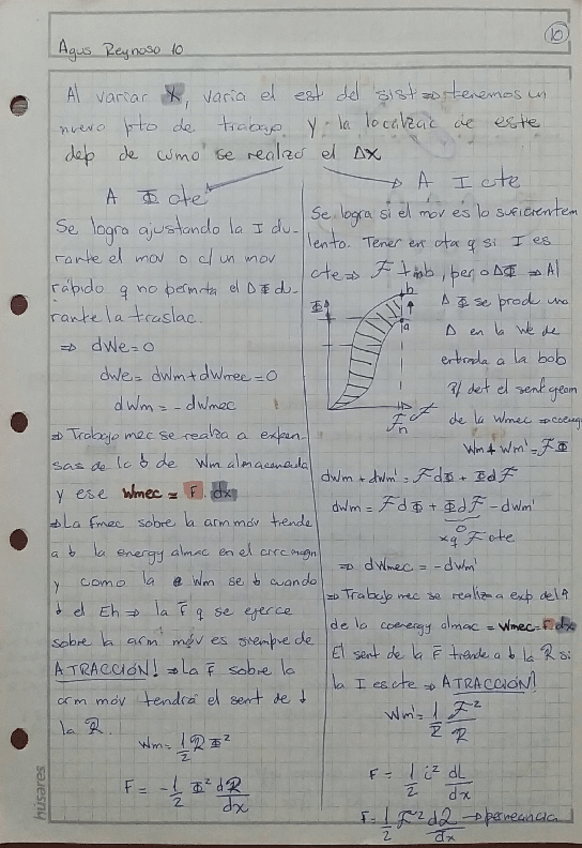 10
Agus Reynoso 10
Al variar X, varia el est del sist ⇒ tenemos un
nuevo pto de trabajo y la localizac de este
dep de cómo se realizó el Δx
A Φ cte
Se logra ajustando la I du-
rante el mov o c/ un mov
rápido q no permita el ΔΦ du-
rante la traslac.
⇒ dWe=0
dWe= dWm+dWmec=0
dWm=-dWmec
⇒ Trabajo mec se realiza a expen-
sas de la ↓ de Wm almacenada
y ese Wmec = F.dx
⇒ La Fmec sobre la arm móv tiende
a ↓ la energy almac en el circ magn
y como la Wm se ↓ cuando
↓ el Eh ⇒ la F̄ q se ejerce
sobre la arm móv es siempre de
ATRACCIÓN! ⇒ La F̄ sobre la
arm móv tendrá el sent de ↓
la R.
Wm = 1/2 R Φ²
F = -1/2 Φ² dR/dx
A I cte
Se logra si el mov es lo suficientem
lento. Tener en cta q si I es
cte ⇒ F tmb, pero ΔΦ ⇒ Al
Δ Φ se prod una
Δ en la We de
entrada a la bob
P/ det el sent geom
de la Wmec ⇒ coenergy
Φ
b
a
Fn
F
Wm + Wm' = FΦ
dWm + dWm' = F dΦ + Φ dF
dWm = F dΦ + Φ dF - dWm'
0
xq F cte
⇒ dWmec = -dWm'
⇒ Trabajo mec se realiza a exp del ↑
de la coenergy almac = Wmec = F.dx
El sent de la F̄ tiende a ↓ la R si
la I es cte ⇒ ATRACCIÓN!
Wm' = 1/2 F²/R
F = 1/2 i² dL/dx
F = 1/2 F² dΛ/dx → permeancia
húsares